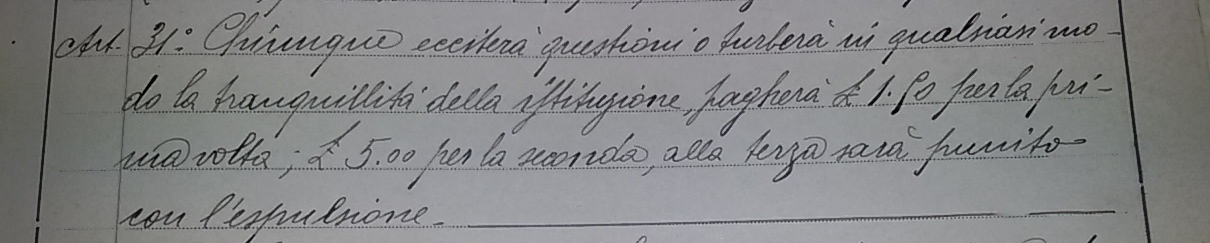 Art. 31° Chiunque ecciterà questioni o turberà in qualsiasi mo-
do la tranquillità della istituzione, pagherà £ 1.50 per la pri-
ma volta; £ 5.00 per la seconda, alla terza sarà punito
con l'espulsione.